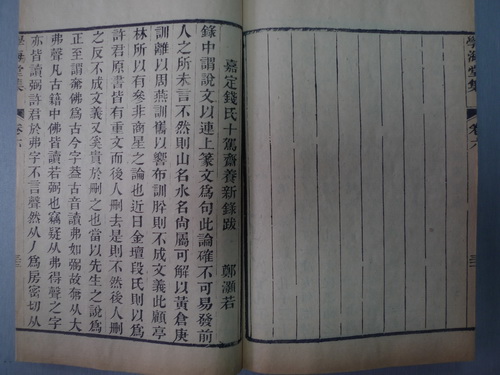 學海堂集
卷六
三
嘉定錢氏十駕齋養新錄跋 鄭灝若
錄中謂說文以連上篆文爲句此論確不可易發前
人之所未言不然則山名水名尙屬可解以黃倉庚
訓離以周燕訓巂以響布訓肸則不成文義此顧亭
林所以有參非商星之論也近日金壇段氏則以爲
許君原書皆有重文而後人刪去是則不然後人刪
之反不成文義又奚貴於刪之也當以先生之說爲
正至謂奔佛爲古今字葢古音讀弗如弼故奔从大
弗聲凡古籍中佛皆讀若弼也竊疑从弗得聲之字
亦皆讀弼許君於弗字不言聲然从丿爲房密切从
學海堂集
卷六
三